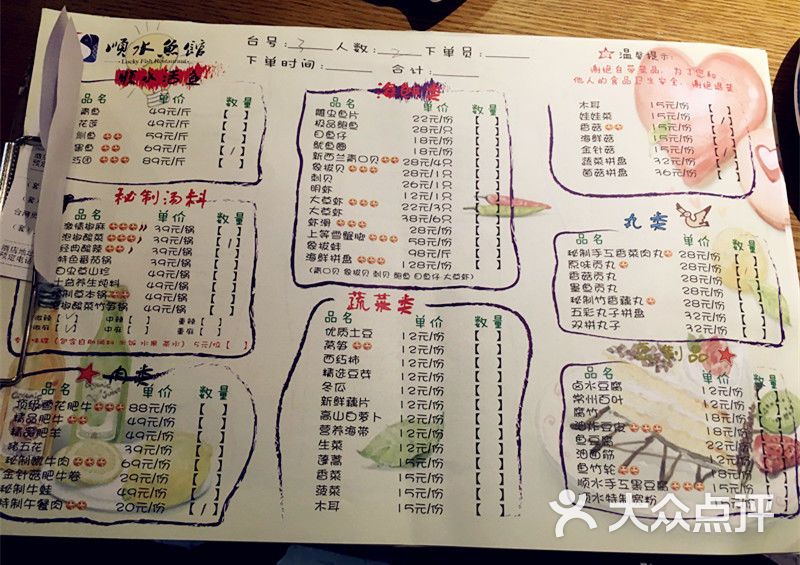 順水魚館
Lucky Fish Restaurant
台号: 3 人数: 下单员:
下单时间: 合计:
☆温馨提示:
谢绝自带菜品,为了您和
他人的食品卫生安全,谢绝退菜
顺水活鱼
品名 单价 数量
青鱼 49元/斤
花莲 49元/斤
鱼 59元/斤
鱼 69元/斤 /
团 89元/斤
秘制汤料
品名 单价 数量
激情椒麻 39元/锅
泡椒酸菜 39元/锅 /
经典酸辣 39元/锅
特色番茄锅 39元/锅
白灼草山珍 49元/锅
十益养生炖料 49元/锅
制草本锅 49元/锅
椒酸菜竹笋锅 49元/锅
微辣 中辣 重辣
微麻 中麻 重麻
(包含自助调料 米饭 水果 茶水) 5元/位
肉类
品名 单价 数量
顶级雪花肥牛 88元/份
精品肥牛 49元/份
精品肥羊 49元/份
猪五花 39元/份
秘制嫩牛肉 69元/份
金针菇肥牛卷 29元/份
秘制牛蛙 49元/份
特制午餐肉 20元/份 /
海鲜类
品名 单价 数量
雕虫鱼片 22元/份
极品鲍鱼 28元/份
白鱼仔 18元/份
鱿鱼圈 18元/份
新西兰青口贝 28元/4只
象拔贝 28元/1只
刺贝 26元/1只
明虾 12元/1只
大草虾 22元/3只
大草虾 38元/6只
虾滑 28元/份
上等雪蟹脸 58元/份
象拔蚌 98元/份
海鲜拼盘 128元/份
(青口贝 象拔贝 刺贝 鲍鱼 白鱼仔 大草虾)
蔬菜类
品名 单价 数量
优质土豆 12元/份
莴笋 12元/份
西红柿 12元/份
精选豆芽 12元/份
冬瓜 12元/份
新鲜藕片 12元/份
高山白萝卜 12元/份
营养海带 12元/份
生菜 12元/份
蓬蒿 15元/份
香菜 15元/份
菠菜 15元/份
木耳 15元/份
木耳 15元/份
娃娃菜 15元/份 /
香菇 15元/份
海鲜菇 15元/份
金针菇 15元/份
蔬菜拼盘 32元/份
菌菇拼盘 36元/份
丸类
品名 单价 数量
秘制手工香菜肉丸 28元/份
原味贡丸 28元/份
香菇贡丸 28元/份
墨鱼贡丸 28元/份
秘制竹香藕丸 28元/份
五彩丸子拼盘 32元/份
双拼丸子 32元/份
制品
品名 单价 数量
卤水豆腐 12元/份
常州百叶 12元/份
腐竹 18元/份
油炸豆皮 18元/份
鱼豆腐 22元/份
油面筋 12元/份
鱼竹轮 18元/份
顺水手工黑豆腐 15元/份
顺水特制宽粉
大众点评